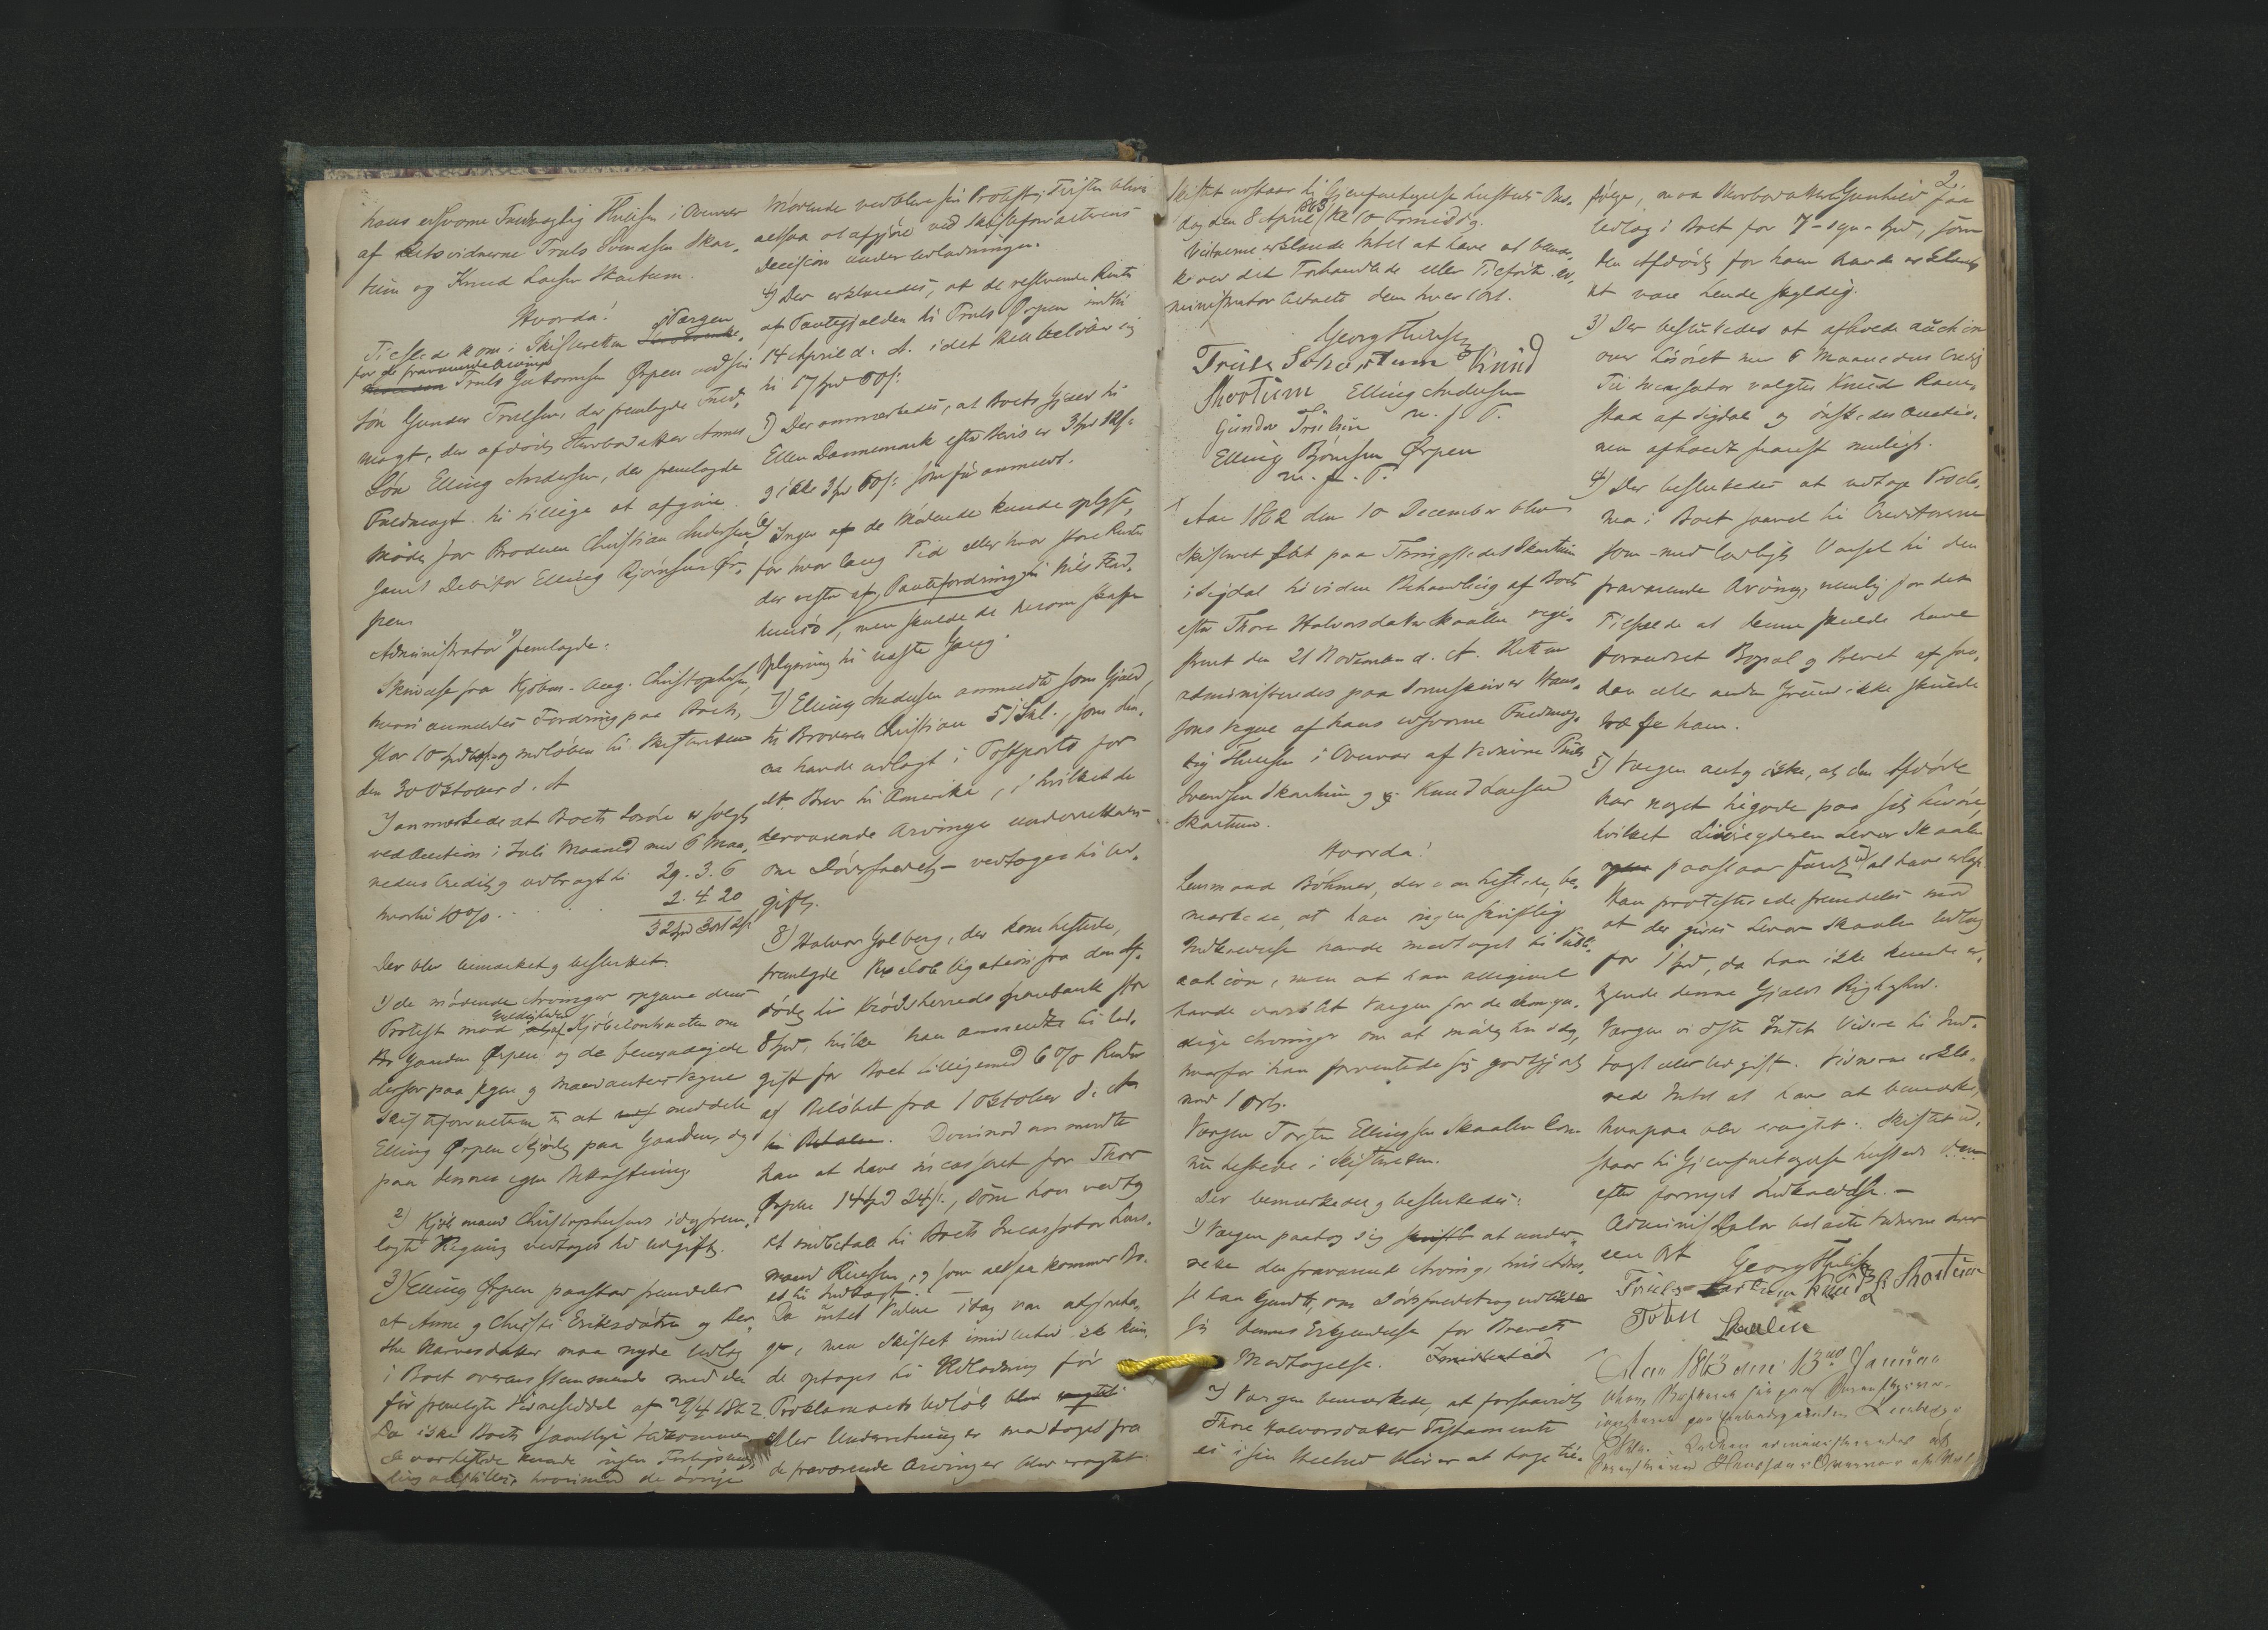 hans edsvorne Fuldmægtig Thulesen i Overvær
af Retsvidnerne Truls Svendsen Skar-
tum og Knud Larsen Skartum.
Hvorda!
Tilstede kom i Skifteretten Værgen
for de fraværende Arvinge
Truls Guttormsen Ørpen ved sin
Søn Gunder Trulsen, der fremlagde Fuld-
magt, den afdødes Steverdatter Annes
Søn Elling Andersen, der fremlagde
Fuldmagt til tillige at afgive
Møde for Broderen Christian Andersen,
samt Debitor Elling Bjørnsen Ør-
pen
Administrator fremlagde:
Skrivelse fra Kjøbm. Aug. Christophersen,
hvori anmeldes Fordring paa Boet,
stor 10 spd og indløben til Skifteretten
den 30 Oktober d. A.
anmærkede at Boets Løsøre er solgt
ved Auction i Juli Maaned med 6 Maa-
neders Credit og udbragt til 29. 3. 6
hvortil 10% . . . 2. 4 20
32 spd 3 ort 2 s
Der blev bemærket og besluttet.
1) de mødende Arvinger opgave deres
Protest mod Gyldigheden af Kjøbekontrakten om
Gaarden Ørpen og de bemyndigede
derfor paa egne og Mandanters Vegne
Skifteforvalteren til at meddele
Elling Ørpen Skjøde paa Gaarden, dog
paa dennes egen Bekostning
2) Kjøbmand Christophersens idag frem-
lagte Regning vedtages til Udgift.
3) Elling Ørpen paastod fremdeles
at Anne og Christi Eriksdøtre og Ber-
the Narvesdatter maa nyde Udlæg
i Boet overensstemmende med den
før fremlagte Vidneseddel af 29/4 1862.
Da ikke Boets samtlige Vedkommende
var tilstede kunde ingen Forligsmæg-
ling afstilles, hvorimod de øvrige
Mødende vedblive sin Protest, Tvisten bliver
altsaa at afgjøre ved Skifteforvalterens
Decision under Udlodningen.
4) Der erklæredes, at de resterende Renter
af Pantegjælden til Truls Ørpen indtil
14 April d. A. i det Hele beløber sig
til 17 spd 60 s.
5) Der anmærkedes, at Boets Gjæld til
Ellen Dannemark efter Bevis er 3 spd
og ikke 3 spd 60 s. som før anmeldt.
6) Ingen af de Mødende kunde oplyse,
for hvor lang Tid eller hvor store Renter
der rester af Pantefordringen til Nils Frad-
huusø, men skulde de herom skaffe
Oplysning til næste Gang.
7) Elling Andersen anmeldte som Gjæld,
til Broderen Christian 51 Skl., som den-
ne havde udlagt i Postporto for
et Brev til Amerika, i hvilket de
derværende Arvinger underrettedes
om Dødsfaldet — vedtoges til Ud-
gift.
8) Halvor Golberg, der kom tilstede,
fremlagde Vexelobligation fra den af-
døde til Krødsherreds Sparebank stor
8 spd, hvilke han anmeldte til Ud-
gift for Boet tilligemed 6% Renter
af Beløbet fra 1 Oktober d. A.
Derimod anmeldte
han at have incasseret for Thor
Ørpen 14 spd 24 s., som han vedtog
at indbetale til Boets Incassator Lens-
mand Riversen, og som altsaa kommer Bo-
et til Indtægt.
Da intet Videre idag var at foreta-
ge, men Skiftet imidlertid ik kun-
de optages til Udlodning før
Proklamaets Udløb
eller Underretning er modtaget fra
de fraværende Arvinger blev eragtet
Skiftet udstaar til Gjenforetagelse hersteds Ons-
dag den 8 April 1863 Kl. 10 Formiddag.
Vidnerne erklærede Intet at have at bemær-
ke ved det Forhandlede eller Tilførte. Ad-
ministrator betalte dem hver 1 Ort.
Georg Thulesen
Truls Sv. Skartum Knud
Skartum Elling Andersen
Gunder Trulsen m. f. P.
Elling Bjørnsen Ørpen
m. f. P.
Aar 1862 den 10 December blev
Skifteret sat paa Thingstedet Skartum
i Sigdal til videre Behandling af Boet
efter Thore Halvorsdatter Skaalen regi-
streret den 21 November d. A. Retten
administreredes paa Sorenskriver Hans-
sons Vegne af hans edsvorne Fuldmæg-
tig Thulesen i Overvær af Vidnerne Truls
Svendsen Skartum og Knud Larsen
Skartum.
Hvorda!
Lensmand Böhmer, der var tilstede, be-
mærkede, at han ingen skriftlig
Indkaldelse havde modtaget til Publi-
cation, men at han alligevel
havde varslet Værgen for de
dige Arvinger om at møde her idag,
hvorfor han formentede sig godtgjort
med 1 Ort.
Værgen Torsten Ellingsen Skaalen kom
nu tilstede i Skifteretten.
Der bemærkedes og besluttedes:
1) Værgen paatog sig at under-
rette den fraværende Arving, hvis Adres-
se han kjendte, om Dødsfaldet og udbede
sig dennes Erkjendelse for Brevets
Modtagelse.
2) Værgen bemærkede, at forsaavidt
Thore Halvorsdatters Testamente
ei i sin Heelhed bliver at tage til
2.
følge, maa Steverdatter Gunhild faa
Udlæg i Boet for 7 – syv – spd, som
den Afdøde for ham havde erklæret
at være hende skyldig.
3) Der besluttedes at afholde Auction
over Løsøret med 6 Maaneders Credit
Til Incassator valgtes Knud Ram-
stad af Sigdal og ønskedes Auctio-
nen afholdt snarest muligt.
4) Der besluttedes at udtage Procla-
ma i Boet saavel til Creditorerne
som med lovligt Varsel til den
fraværende Arving, nemlig for det
Tilfælde at denne skulde have
forandret Bopæl og Brevet af saa-
dan eller anden Grund ikke skulde
træffe ham.
5) Værgen antog ikke, at den Afdøde
har noget tilgode paa sit Livøre,
hvilket Livøreyderen Iver Skaalen
paastaar fuldt ud at have erlagt
Han protesterede fremdeles mod
at der gives Iver Skaalen Udlæg
for 1 spd, da han ikke kunde er-
kjende denne Gjælds Rigtighed.
Værgen vidste Intet Videre til Ind-
tægt eller Udgift. Vidnerne erklæ-
rede Intet at have at bemærke,
hvorpaa blev eragtet: Skiftet ud-
staar til Gjenforetagelse hersteds
efter fornyet Indkaldelse. —
Administrator betalte Vidnerne hver
een Ort Georg Thulesen
Truls Skartum Knud L. Skartum
Skaalen
Aar 1863 den 13de Januar